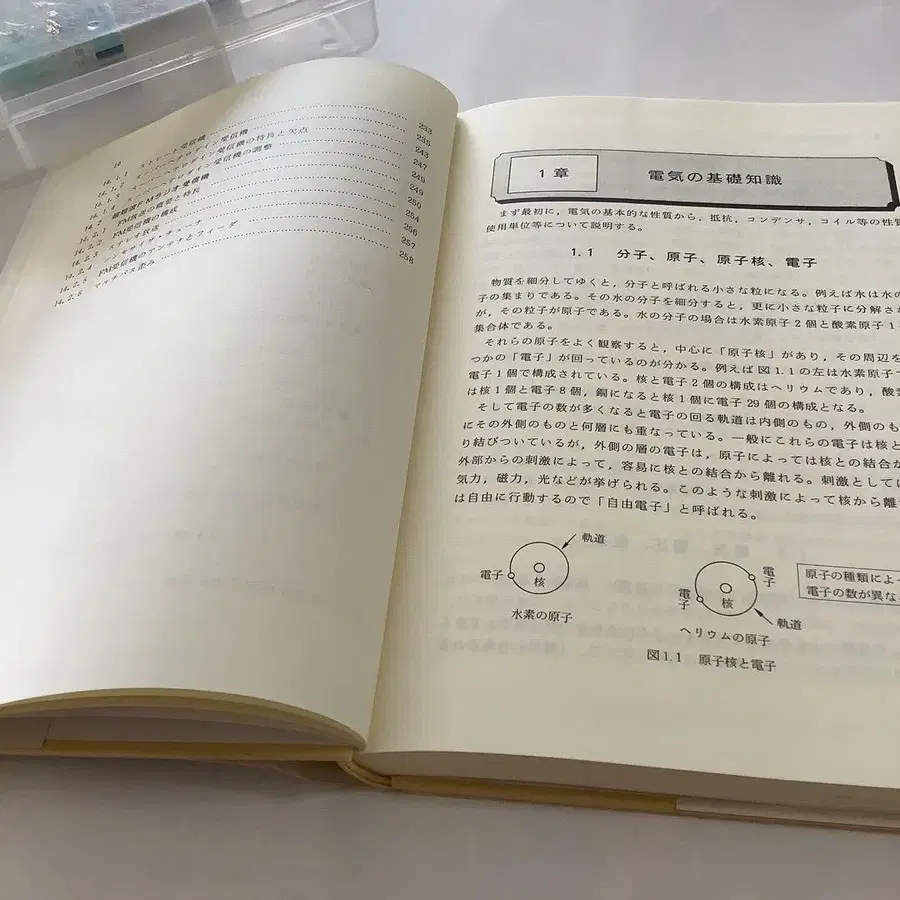 10
14.1.1 ストレート受信機 233
14.1.2 スーパーヘテロダイン受信機 235
14.1.3 スーパーヘテロダイン受信機の特長と欠点 243
14.1.4 スーパーヘテロダイン受信機の調整 247
14.2 超短波FMラジオ受信機 249
14.2.1 FM放送の概要と特長 249
14.2.2 FM受信機の構成 250
14.2.3 ステレオ放送 254
14.2.4 シンセサイザ・チューナ 256
14.2.5 FM受信機のアンテナとフィーダ 257
14.2.6 マルチパス歪み 258
1章 電気の基礎知識
まず最初に，電気の基本的な性質から，抵抗，コンデンサ，コイル等の性質
使用単位等について説明する。
1.1 分子、原子、原子核、電子
物質を細分してゆくと，分子と呼ばれる小さな粒になる。例えば水は水の
子の集まりである。その水の分子を細分すると，更に小さな粒子に分解さ
が，その粒子が原子である。水の分子の場合は水素原子2個と酸素原子1
集合体である。
それらの原子をよく観察すると，中心に「原子核」があり，その周辺を
つかの「電子」が回っているのが分かる。例えば図1.1の左は水素原子で
電子1個で構成されている。核と電子2個の構成はヘリウムであり，酸素
は核1個と電子8個，銅になると核1個に電子29個の構成となる。
そして電子の数が多くなると電子の回る軌道は内側のもの，外側のも
にその外側のものと何層にも重なっている。一般にこれらの電子は核と
り結びついているが，外側の層の電子は，原子によっては核との結合が
外部からの刺激によって，容易に核との結合から離れる。刺激としては
気力，磁力，光などが挙げられる。このような刺激によって核から離れ
は自由に行動するので「自由電子」と呼ばれる。
軌道
電子
核
水素の原子
電子
電子
核
軌道
ヘリウムの原子
原子の種類によっ
電子の数が異な
図1.1 原子核と電子